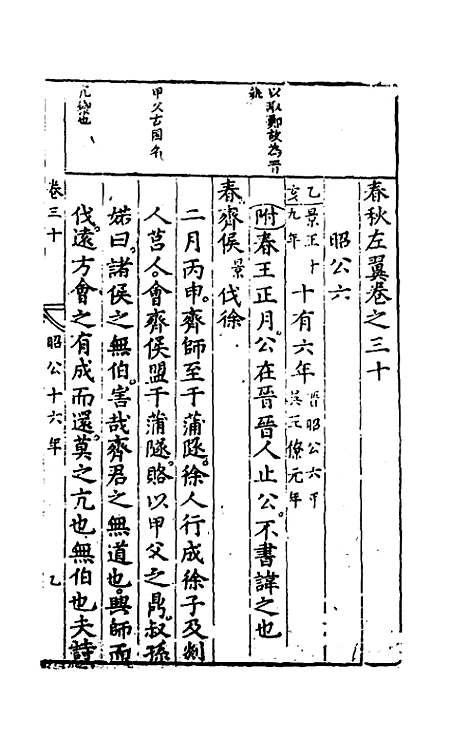 春秋左翼卷之三十
昭公六
乙亥 景王十九年 十有六年 晋昭公六年 吳王僚元年
附春王正月。公在晉晉人止公。不書諱之也
春齊侯景伐徐
二月丙申。齊師至于蒲隧。徐人行成徐子及剡
人莒人。會齊侯盟于蒲隧。賂以甲父之鼎。叔孫
婼曰。諸侯之無伯。害哉齊君之無道也。興師而
伐遠。方會之有成而還。莫之亢也無伯也夫詩
以取鄭故為晋
甲父古国名
亢禦也
卷三十
昭公十六年
乙